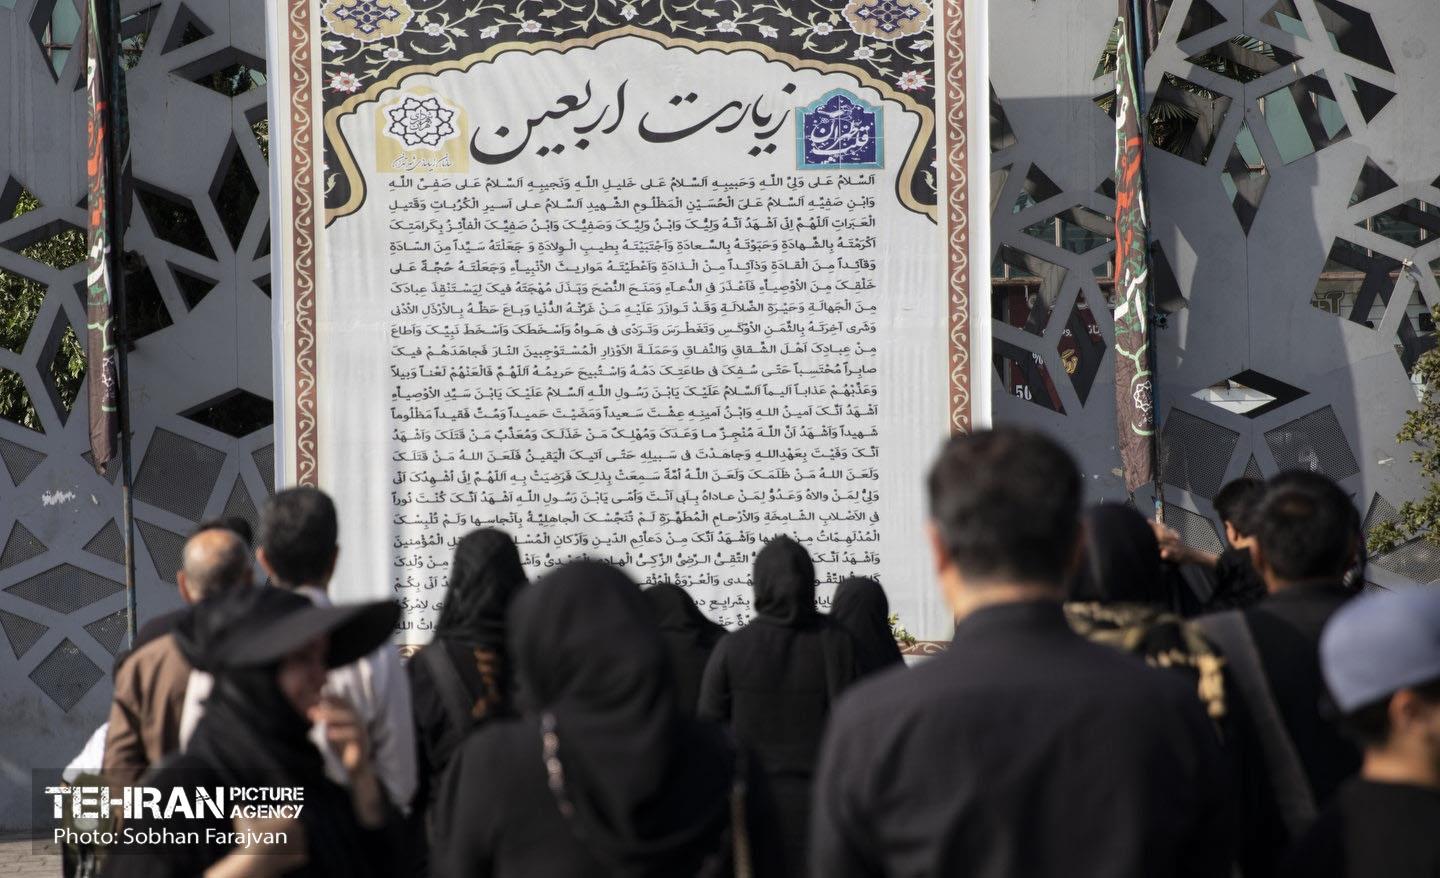 زیارت اربعین
قلب طهران
اَلسَّلامُ عَلی وَلِیِّ اللَّهِ وَحَبیبِهِ اَلسَّلامُ عَلی خَلیلِ اللَّهِ وَنَجیبِهِ اَلسَّلامُ عَلی صَفِیِّ اللَّهِ
وَابْنِ صَفِیِّهِ اَلسَّلامُ عَلیَ الْحُسَیْنِ الْمَظْلُومِ الشَّهیدِ اَلسَّلامُ علی اَسیرِ الْکُرُباتِ وَقَتیلِ
الْعَبَراتِ اَللّهُمَّ اِنّی اَشْهَدُ اَنَّهُ وَلِیُّکَ وَابْنُ وَلِیِّکَ وَصَفِیُّکَ وَابْنُ صَفِیِّکَ الْفآئِزُ بِکَرامَتِکَ
اَکْرَمْتَهُ بِالشَّهادَةِ وَحَبَوْتَهُ بِالسَّعادَةِ وَاَجْتَبَیْتَهُ بِطیبِ الْوِلادَةِ وَ جَعَلْتَهُ سَیِّداً مِنَ السّادَةِ
وَقآئِداً مِنَ الْقادَةِ وَذآئِداً مِنْ الْذادَةِ وَاَعْطَیْتَهُ مَواریثَ الْأَنْبِیاءِ وَجَعَلْتَهُ حُجَّةً عَلی
خَلْقِکَ مِنَ الْأَوْصِیاءِ فَاَعْذَرَ فی الدُّعاءِ وَمَنَحَ النُّصْحَ وَبَذَلَ مُهْجَتَهُ فیکَ لِیَسْتَنْقِذَ عِبادَکَ
مِنَ الْجَهالَةِ وَحَیْرَةِ الضَّلالَةِ وَقَدْ تَوازَرَ عَلَیْهِ مَنْ غَرَّتْهُ الدُّنْیا وَباعَ حَظَّهُ بِالْأَرْذَلِ الْأَدْنی
وَشَری آخِرَتَهُ بِالثَّمَنِ الْأَوْکَسِ وَتَغَطْرَسَ وَتَرَدّی فی هَواهُ وَاَسْخَطَکَ وَاَسْخَطَ نَبِیَّکَ وَاَطاعَ
مِنْ عِبادِکَ اَهْلَ الشِّقاقِ وَالنِّفاقِ وَحَمَلَةَ الْأَوْزارِ الْمُسْتَوْجِبینَ النّارَ فَجاهَدَهُمْ فیکَ
صابِراً مُحْتَسِباً حَتّی سُفِکَ فی طاعَتِکَ دَمُهُ وَاسْتُبیحَ حَریمُهُ اَللّهُمَّ فَالْعَنْهُمْ لَعْناً وَبیلاً
وَعَذِّبْهُمْ عَذاباً اَلیماً اَلسَّلامُ عَلَیْکَ یَابْنَ رَسُولِ اللَّهِ اَلسَّلامُ عَلَیْکَ یَابْنَ سَیِّدِ الْأَوْصِیاءِ
اَشْهَدُ اَنَّکَ اَمینُ اللهِ وَابْنُ اَمینِهِ عِشْتَ سَعیداً وَمَضَیْتَ حَمیداً وَمُتَّ فَقیداً مَظْلُوماً
شَهیداً وَاَشْهَدُ اَنَّ اللَّهَ مُنْجِزٌ ما وَعَدَکَ وَمُهْلِکٌ مَنْ خَذَلَکَ وَمُعَذِّبٌ مَنْ قَتَلَکَ وَاَشْهَدُ
اَنَّکَ وَفَیْتَ بِعَهْدِاللهِ وَجاهَدْتَ فی سَبیلِهِ حَتّی اَتیکَ الْیَقینُ فَلَعَنَ اللهُ مَنْ قَتَلَکَ
وَلَعَنَ اللهُ مَنْ ظَلَمَکَ وَلَعَنَ اللَّهُ اُمَّةً سَمِعَتْ بِذلِکَ فَرَضِیَتْ بِهِ اَللّهُمَّ اِنّی اُشْهِدُکَ اَنّی
وَلِیٌّ لِمَنْ والاهُ وَعَدُوٌّ لِمَنْ عاداهُ بِاَبی اَنْتَ وَاُمّی یَابْنَ رَسُولِ اللَّهِ اَشْهَدُ اَنَّکَ کُنْتَ نُوراً
فی الْأَصْلابِ الشّامِخَةِ وَالْأَرْحامِ الْمُطَهَّرَةِ لَمْ تُنَجِّسْکَ الْجاهِلِیَّةُ بِاَنْجاسِها وَلَمْ تُلْبِسْکَ
الْمُدْلَهِمّاتُ مِنْ وَاَشْهَدُ اَنَّکَ مِنْ دَعآئِمِ الدّینِ وَاَرْکانِ الْمُؤْمِنینَ
وَاَشْهَدُ اَنَّکَ التَّقِیُّ الرَّضِیُّ الزَّکِیُّ مِنْ وُلْدِکَ
وَالْعُرْوَةُ اَنّی بِکُمْ
بِشَرایِعِ لِاَمْرِکُمْ
اللهِ
50
TEHRAN PICTURE AGENCY
Photo: Sobhan Farajvan